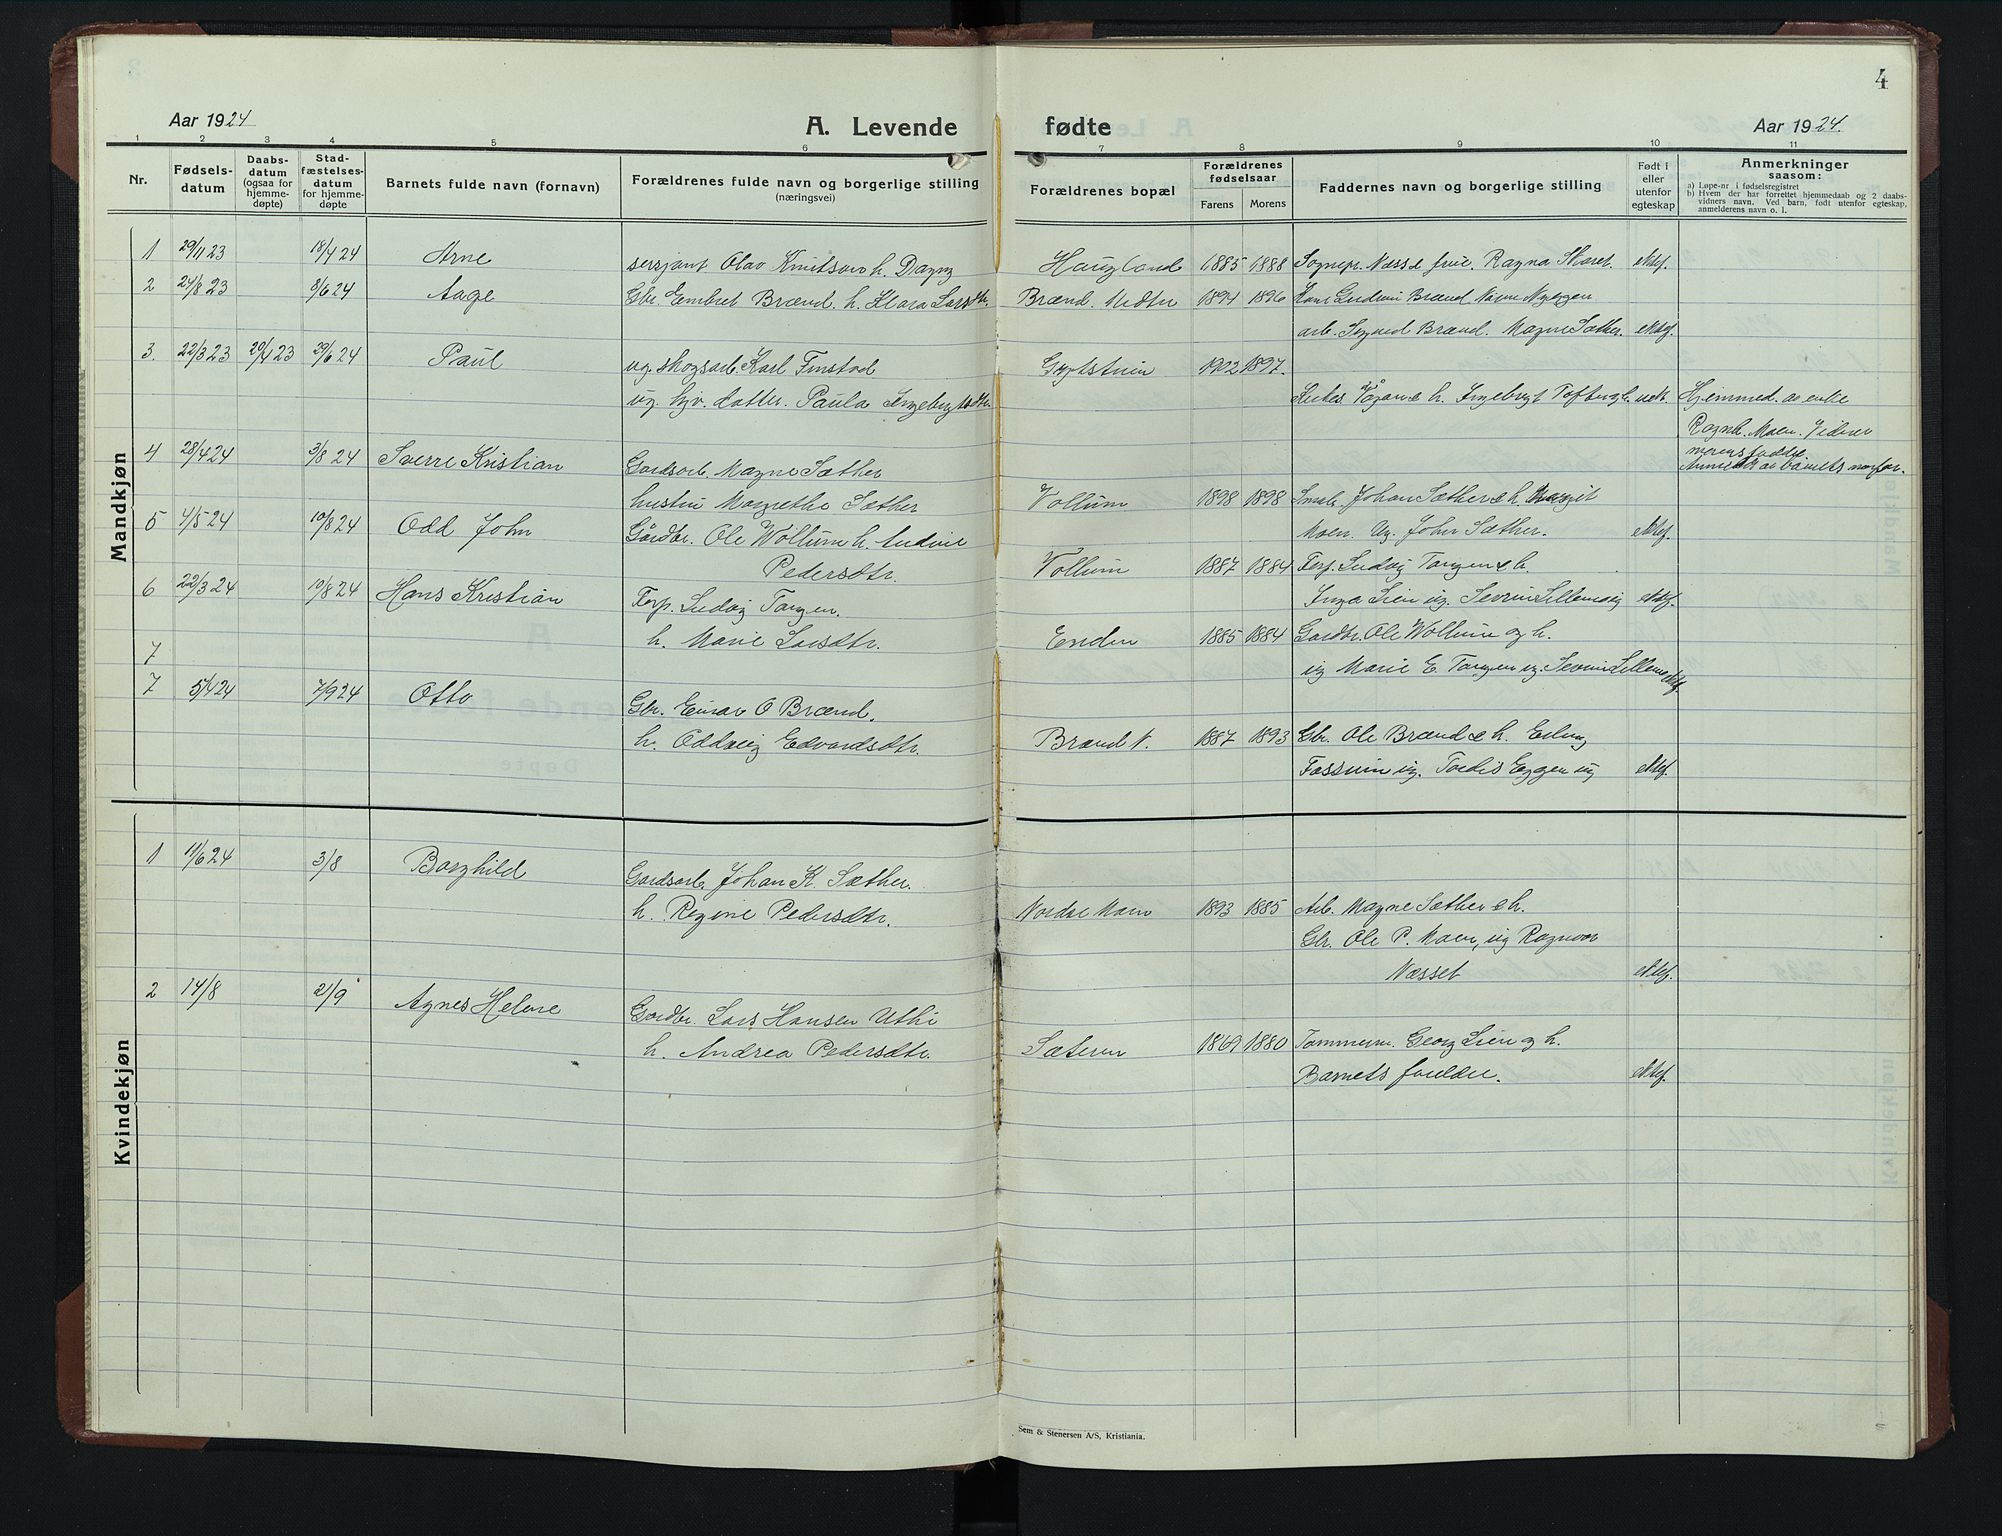 4
Aar 1924
A. Levende
fødte
Aar 1924.
1 2 3 4 5 6 7 8 9 10 11
Nr.
Fødsels-
datum
Daabs-
datum
(ogsaa for
hjemme-
døpte)
Stad-
fæstelses-
datum
for hjemme-
døpte
Barnets fulde navn (fornavn)
Forældrenes fulde navn og borgerlige stilling
(næringsvei)
Forældrenes bopæl
Forældrenes
fødselsaar
Farens Morens
Faddernes navn og borgerlige stilling
Født i
eller
utenfor
egteskap
Anmerkninger
saasom:
a) Løpe-nr i fødselsregistret
b) Hvem der har forrettet hjemmedaab og 2 daabs-
vidners navn. Ved barn, født utenfor egteskap,
anmelderens navn o. l.
Mandkjøn
1 29/11 23 18/4 24 Arne serrjant Olav Knutsen h. Dagny Haugland 1885 1888 Sognepr. Næss & frue. Ragna Skaret. ektef.
2 24/8 23 8/6 24 Aage Gbr. Embret Brænd. h. Klara Larsdtr. Brænd. Nedtre 1894 1896 Gudrun Brænd
arb. Brænd. Magne Sæther. ektef.
3. 22/3 23 20/4 23 29/6 24 Paul ug. skogsarb. Karl Finstad 1902 1897.
ug. hjv. datter. Paula Ingebrigtsdtr. h. Ingebrigt Toftbergh. uekt. Hjemmed. av enke
Ragnh. Moen. Vidner
morens fadde.
av barnets morfar.
4 28/4 24 3/8 24 Sverre Kristian Gardsarb. Magne Sæther
hustru Margrethe Sæther Vollum 1898 1898 Smab. Johan Sæther & h. Margit
5 4/5 24 10/8 24 Odd John Gårdbr. Ole Wollum h. Moen. Ug. John Sæther. ektef.
Pedersdtr. Vollum 1887 1884 Forp. Ludvig Tangen & h.
6 22/3 24 10/8 24 Hans Kristian Forp. Ludvig Tangen. Inga Lien ug. Severin Lillemoeig ektef.
h. Marie Larsdtr. Enden 1885 1884 Gardbr. Ole Wollum og h.
7 ug Marie E. Tangen ug. Severin Lillemo ektef.
7 5/4 24 7/9 24 Otto Gbr. Einar O Brænd.
h. Oddveig Edvardsdtr. Brænd N. 1887 1893 Gbr. Ole Brænd & h. Erling
Fossum ug. Tordis Eggen ug ektef.
Kvindekjøn
1 11/6 24 3/8 Borghild Gardsarb. Johan K. Sæther.
h. Regine Pedersdtr. Nordre Moen 1893 1885 Arb. Magne Sæther & h.
Gbr. Ole P. Moen, ug Ragnvor
Næsset ektef.
2 14/8 21/9 Agnes Helene Gardbr. Lars Hansen Uthi
h. Andrea Pedersdtr. Sæteren 1869 1880 Tømmerm. Georg Lien og h.
Barnets foreldre. ektef.
Sem & Stenersen A/S, Kristiania.